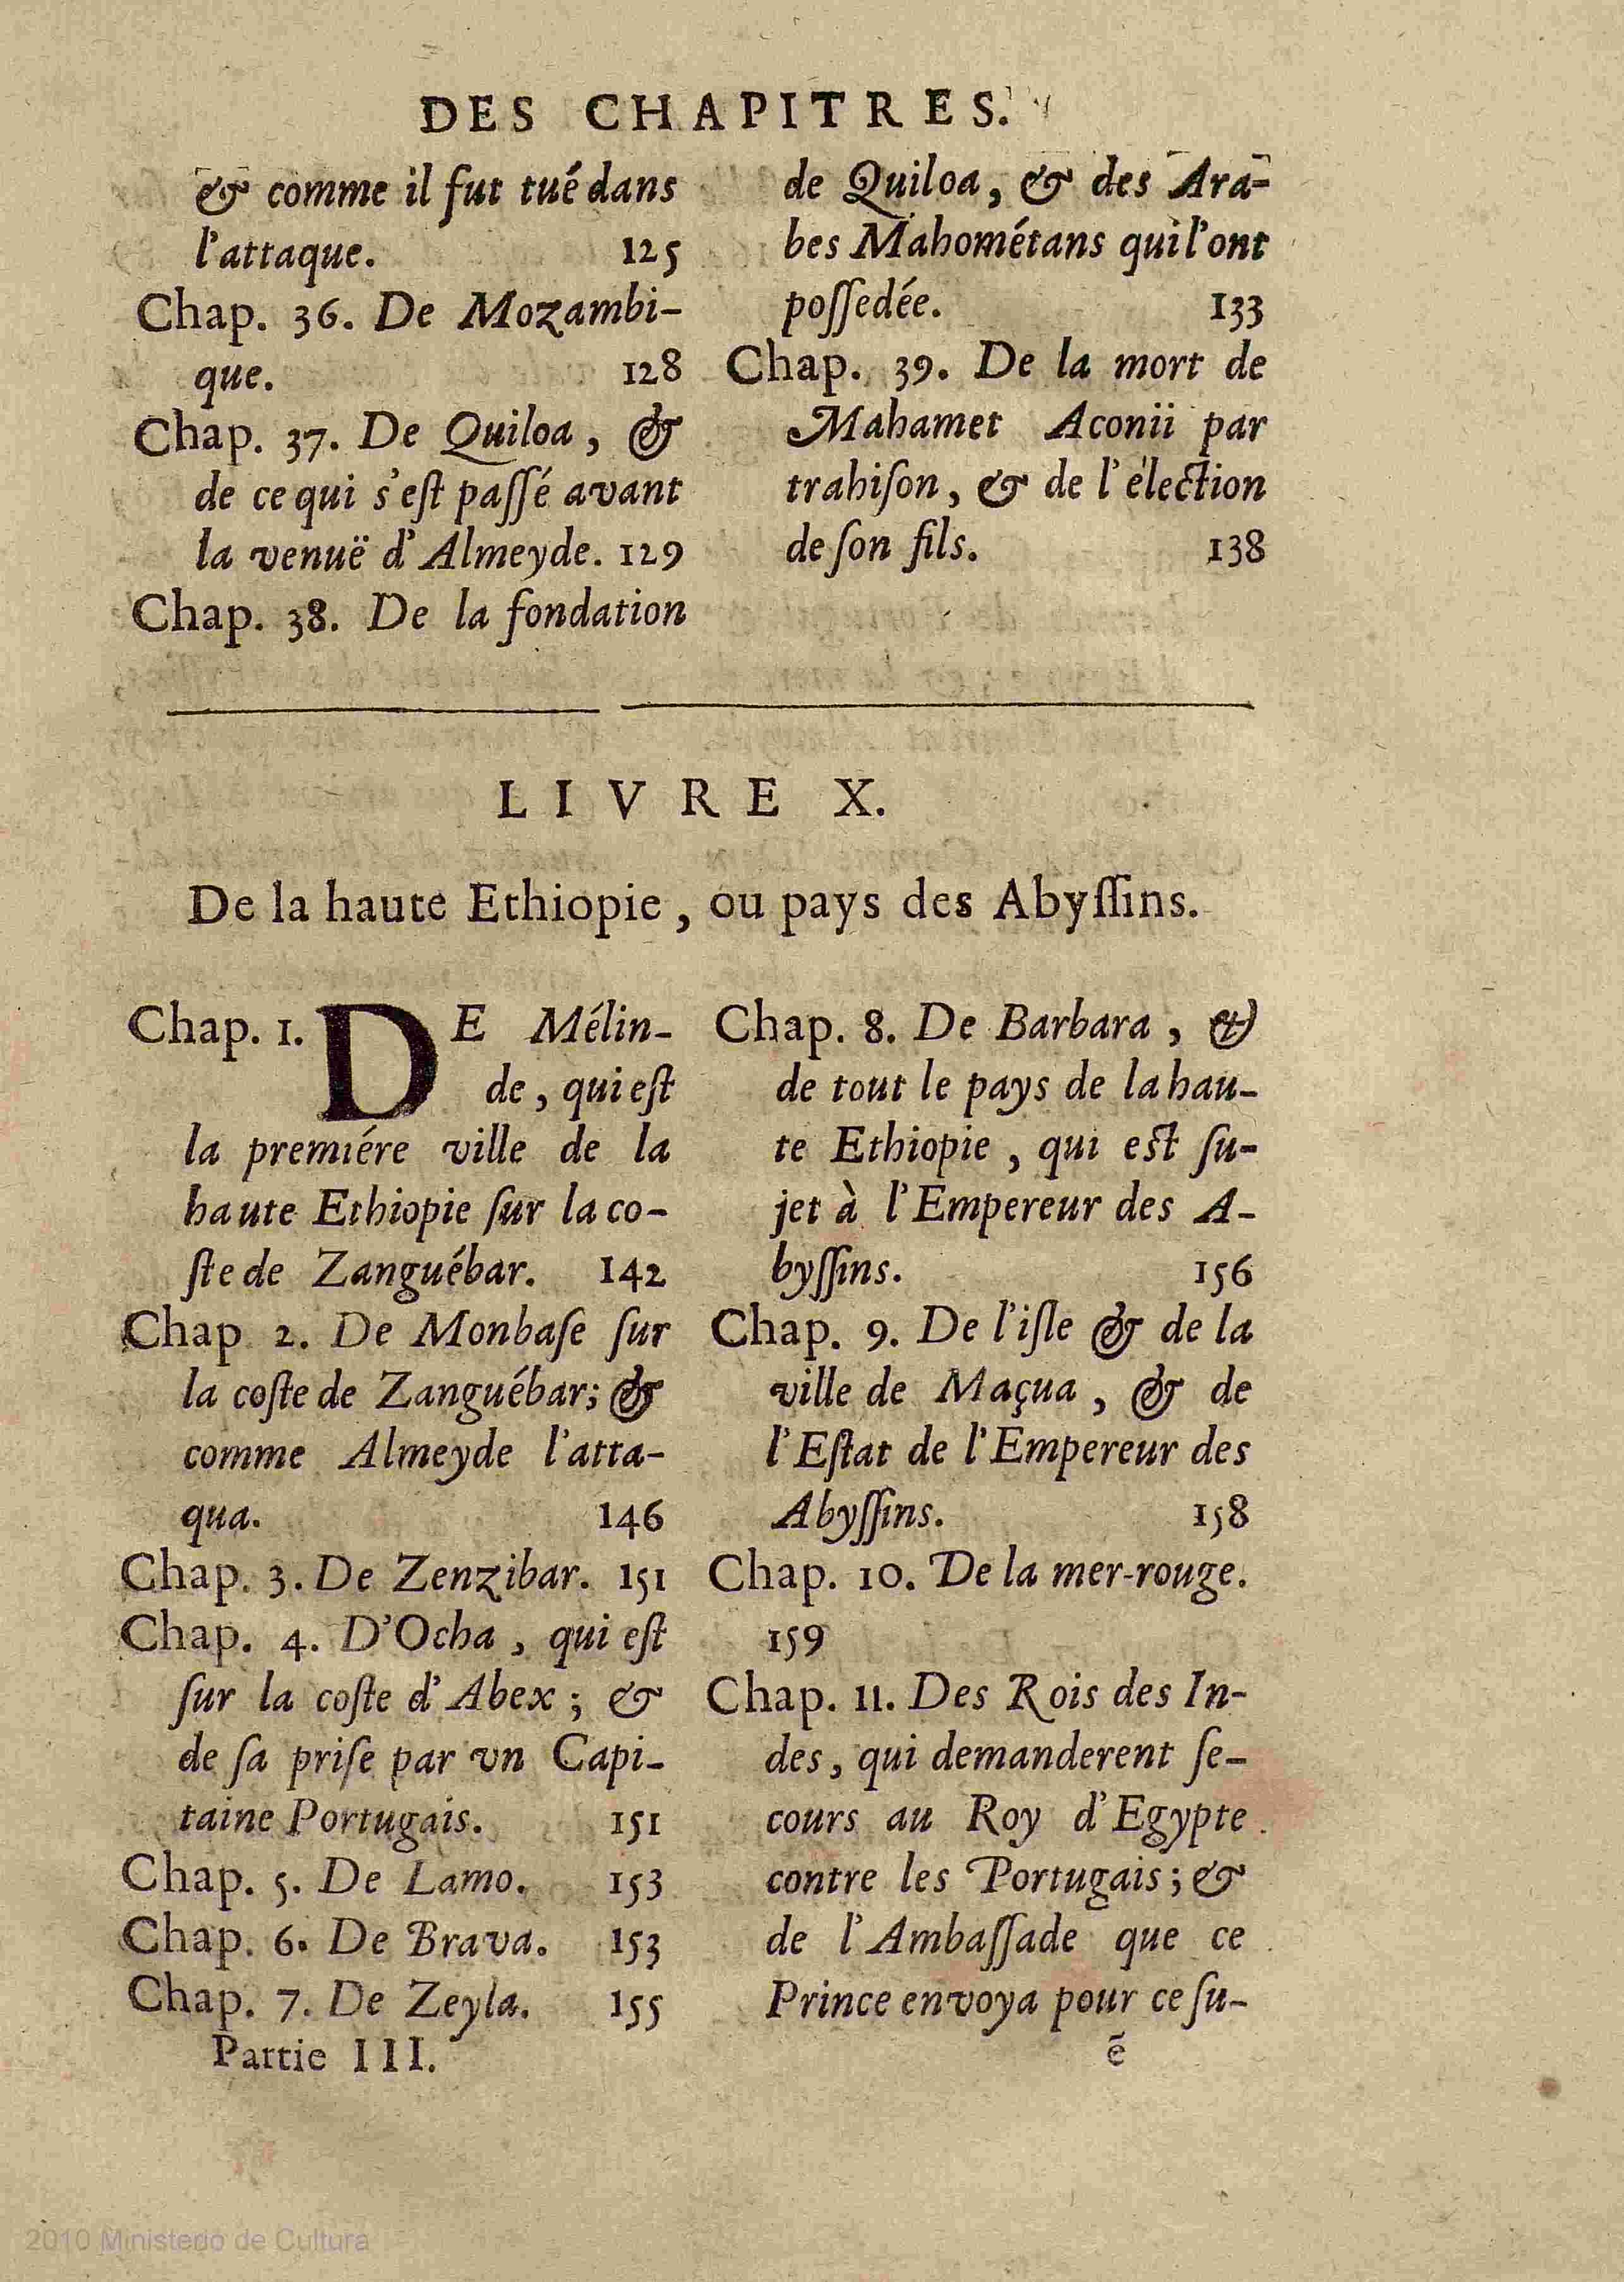 DES CHAPITRES.
& comme il fut tué dans
l'attaque. 125
Chap. 36. De Mozambi-
que. 128
Chap. 37. De Quiloa, &
de ce qui s'est passé avant
la venuë d'Almeyde. 129
Chap. 38. De la fondation
de Quiloa, & des Ara-
bes Mahométans qui l'ont
possedée. 133
Chap. 39. De la mort de
Mahamet Aconii par
trahison, & de l'élection
de son fils. 138
LIVRE X.
De la haute Ethiopie, ou pays des Abyssins.
Chap. 1. DE Mélin-
de, qui est
la premiére ville de la
haute Ethiopie sur la co-
ste de Zanguébar. 142
Chap 2. De Monbase sur
la coste de Zanguébar; &
comme Almeyde l'atta-
qua. 146
Chap. 3. De Zenzibar. 151
Chap. 4. D'Ocha, qui est
sur la coste d'Abex; &
de sa prise par vn Capi-
taine Portugais. 151
Chap. 5. De Lamo. 153
Chap. 6. De Brava. 153
Chap. 7. De Zeyla. 155
Chap. 8. De Barbara, &
de tout le pays de la hau-
te Ethiopie, qui est su-
jet à l'Empereur des A-
byssins. 156
Chap. 9. De l'isle & de la
ville de Maçua, & de
l'Estat de l'Empereur des
Abyssins. 158
Chap. 10. De la mer-rouge.
159
Chap. 11. Des Rois des In-
des, qui demanderent se-
cours au Roy d'Egypte
contre les Portugais; &
de l'Ambassade que ce
Prince envoya pour ce su-
Partie III. ẽ
2010 Ministerio de Cultura